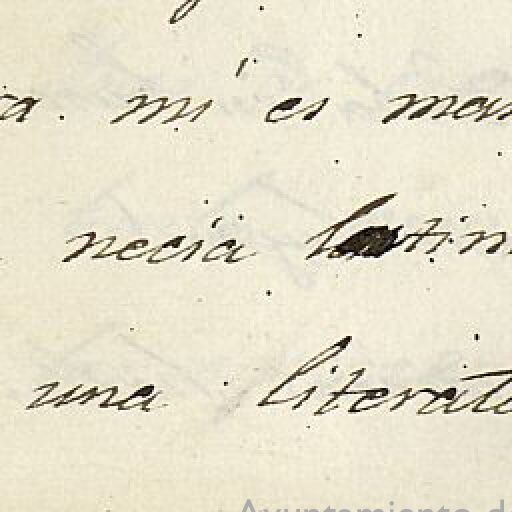 mi es
necia latin
una literat
Ayuntamiento d